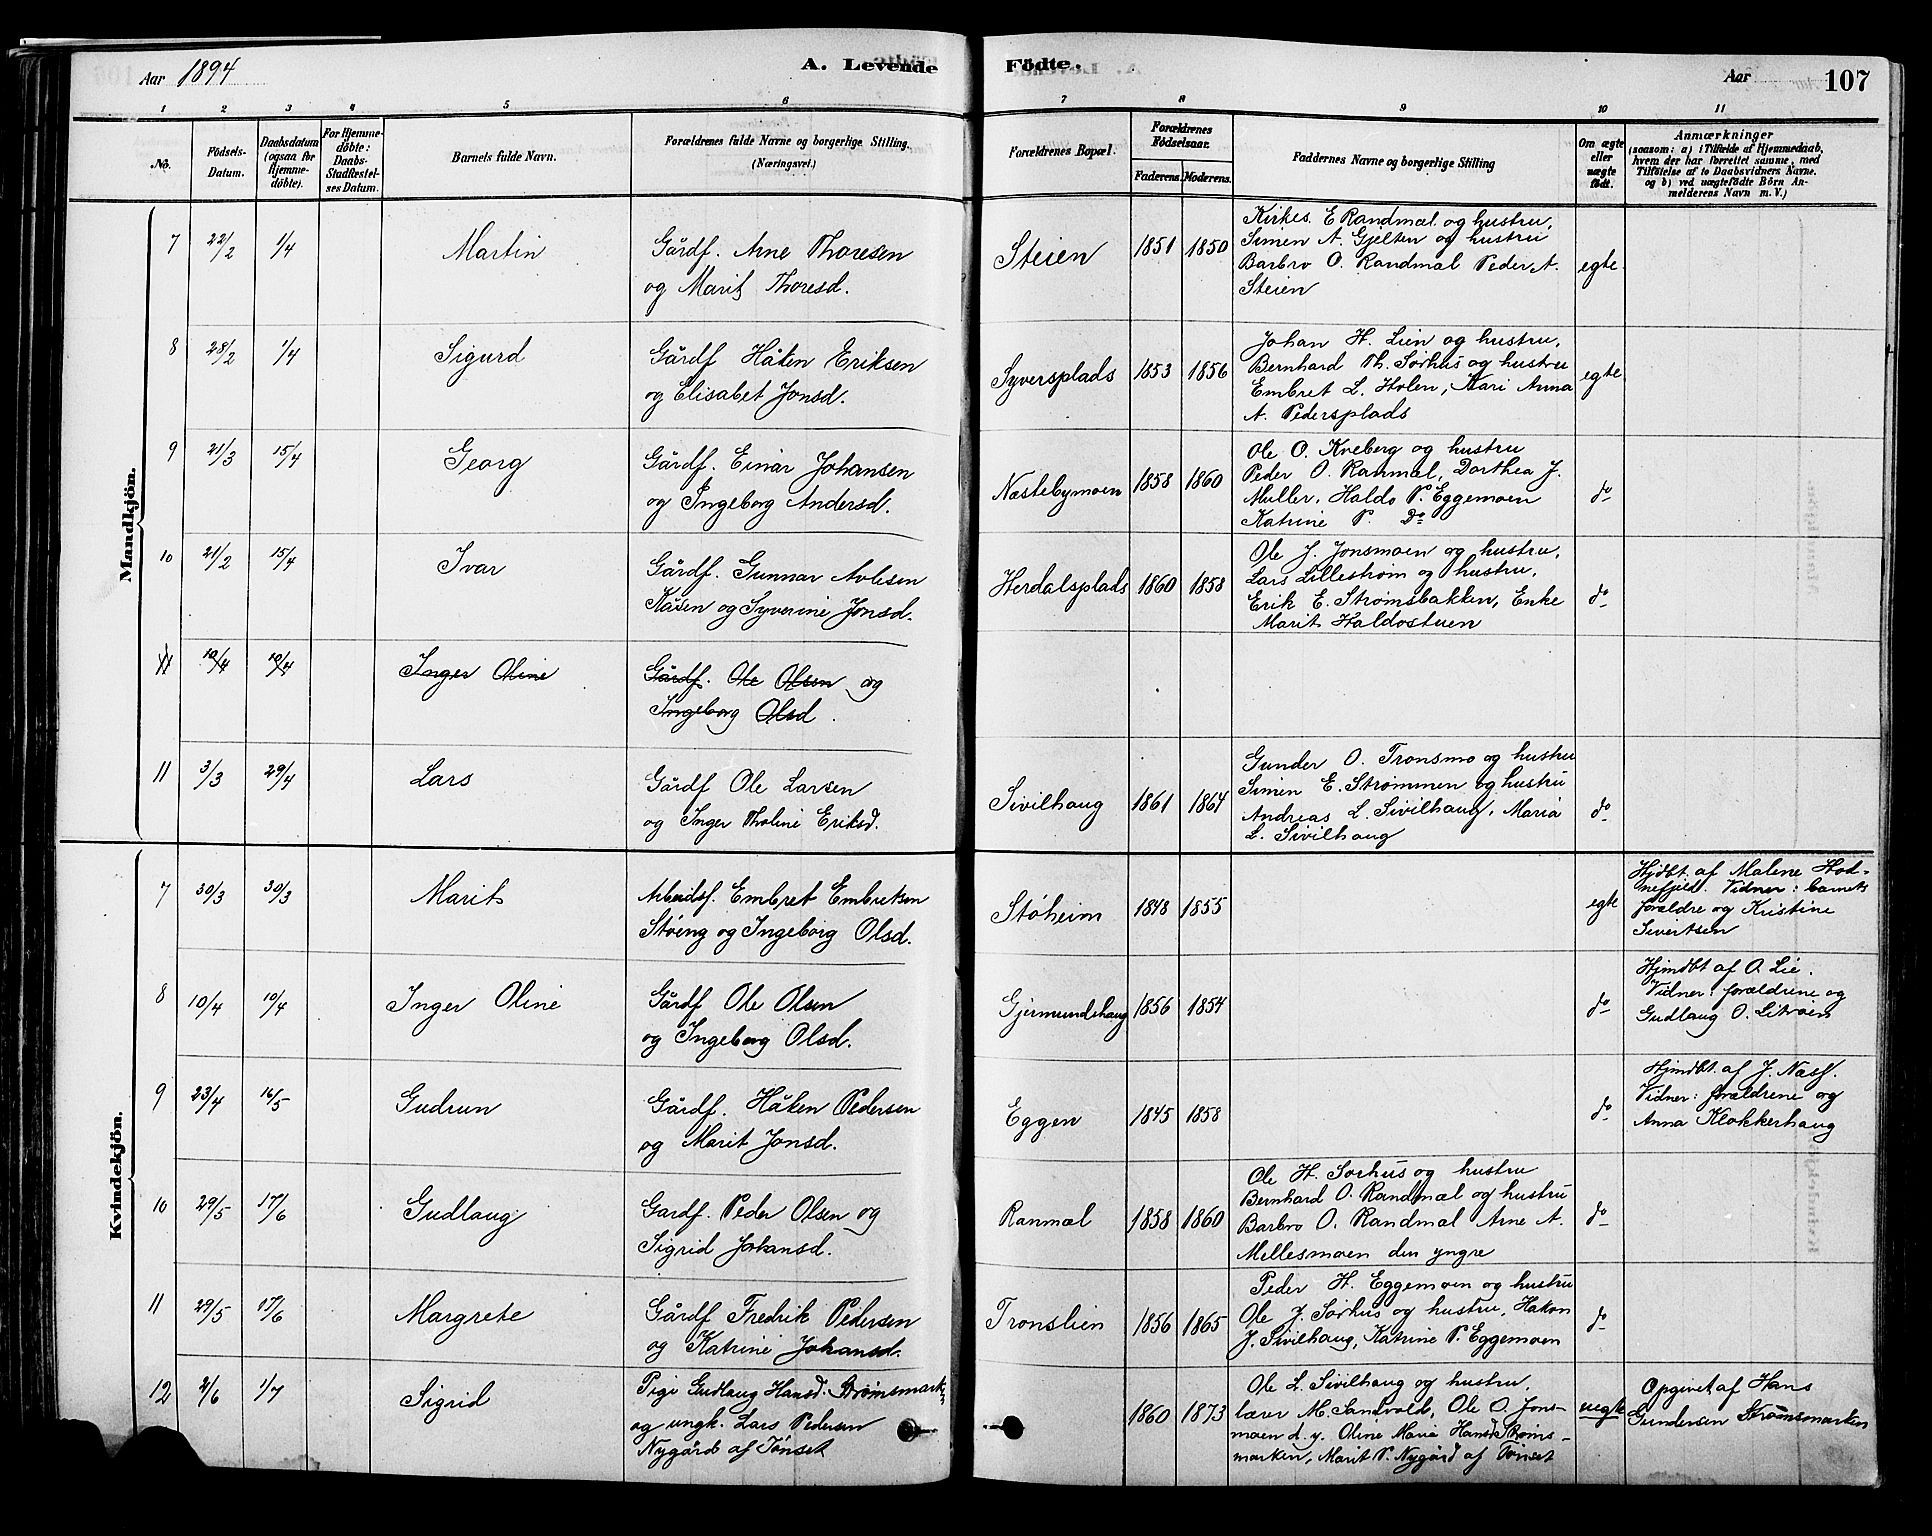 Aar 1894
A. Levende Födte.
Aar 107
1 2 3 4 5 6 7 8 9 10 11
No.
Födsels-Datum.
Daabsdatum (ogsaa for Hjemme-döbte).
For Hjemme-döbte: Daabs-Stadfæstel-ses Datum.
Barnets fulde Navn.
Forældrenes fulde Navne og borgerlige Stilling.
(Næringsvei.)
Forældrenes Bopæl.
Forældrenes Födselsaar.
Faderens. Moderens.
Faddernes Navne og borgerlige Stilling
Om ægte eller uægte födt.
Anmærkninger
(saasom: a) i Tilfælde af Hjemmedaab,
hvem der har forrettet samme, med
Tilföielse af to Daabsvidners Navne.
og b) ved uægtefödte Börn An-
melderens Navn m. V.)
Mandkjön.
7 22/2 1/4 Martin
Gårdf. Arne Thoresen
og Marit Thoresd.
Steien 1851 1850
Kirkes. E Randmæl og hustru,
Simen A. Gjelten og hustru
Barbro O. Randmæl Peder A.
Steien
egte
8 28/2 1/4 Sigurd
Gårdf Håken Eriksen
og Elisabet Jonsd.
Syversplads 1853 1856
Johan H. Lien og hustru,
Bernhard Th. Sørhus og hustru
Embret L. Holen, Kari Anna
A. Pedersplads
egte
9 21/3 15/4 Georg
Gårdf. Einar Johansen
og Ingeborg Andersd.
Næstebymoen 1858 1860
Ole O. Kveberg og hustru
Peder O. Ranmæl, Dorthea J.
Muller, Haldo P. Eggemoen
Katrine P. Do
do
10 21/2 15/4 Ivar
Gårdf. Gunnar Avlesen
Kåsen og Syverine Jonsd.
Herdalsplads 1860 1858
Ole J. Jonsmoen og hustru,
Lars Lillestrøm og hustru,
Erik E. Strømsbakken, Enke
Marit Haldostuen
do
11 10/4 10/4 Inger Oline
Gårdf. Ole Olsen og
Ingeborg Olsd.
11 3/3 29/4 Lars
Gårdf Ole Larsen
og Inger Tholine Eriksd.
Sivilhaug 1861 1864
Gunder O. Tronsmo og hustru
Simen E. Strømmen og hustru
Andreas L. Sivilhaug, Maria
L. Sivilhaug
do
Kvindekjön.
7 30/3 30/3 Marit
Arbeidsf. Embret Embretsen
Støeng og Ingeborg Olsd.
Støheim 1848 1855
egte
Hjdbt af Malene Hod-
nefjeld. Vidner: barnets
forældre og Kristine
Sivertsen
8 10/4 10/4 Inger Oline
Gårdf Ole Olsen
og Ingeborg Olsd.
Gjermundshaug 1856 1854
do
Hjmdbt af O. Lie.
Vidner: forældrene og
Gudlaug O. Litroen
9 23/4 16/5 Gudrun
Gårdf. Håken Pedersen
og Marit Jonsd.
Eggen 1845 1858
do
Hjmdbt. af J. Næss.
Vidner: forældrene og
Anna Klokkerhaug
10 29/5 17/6 Gudlaug
Gardf. Peder Olsen og
Sigrid Johansd.
Ranmæl 1858 1860
Ole H. Sørhus og hustru
Bernhard O. Randmæl og hustru
Barbro O. Randmæl Arne A.
Mellesmoen den yngre
do
11 29/5 17/6 Margrete
Gårdf Fredrik Pedersen
og Katrine Johansd.
Tronslien 1856 1865
Peder H. Eggemoen og hustru
Ole J. Sørhus og hustru, Hakon
J. Sivilhaug, Katrine P. Eggemoen
do
12 2/6 1/7 Sigrid
Pige Gudlaug Hansd. Strømsmark-
og ungk. Lars Pedersen
Nygård af Tønset
1860 1873
Ole L. Sivilhaug og hustru,
lærer M. Sandvold, Ole O. Jons-
moen d. y. Oline Maria Hansd Strøms-
marken, Marit P. Nygård af Tønset
uegte
Opgivet af Hans
Gundersen Strømsmarken